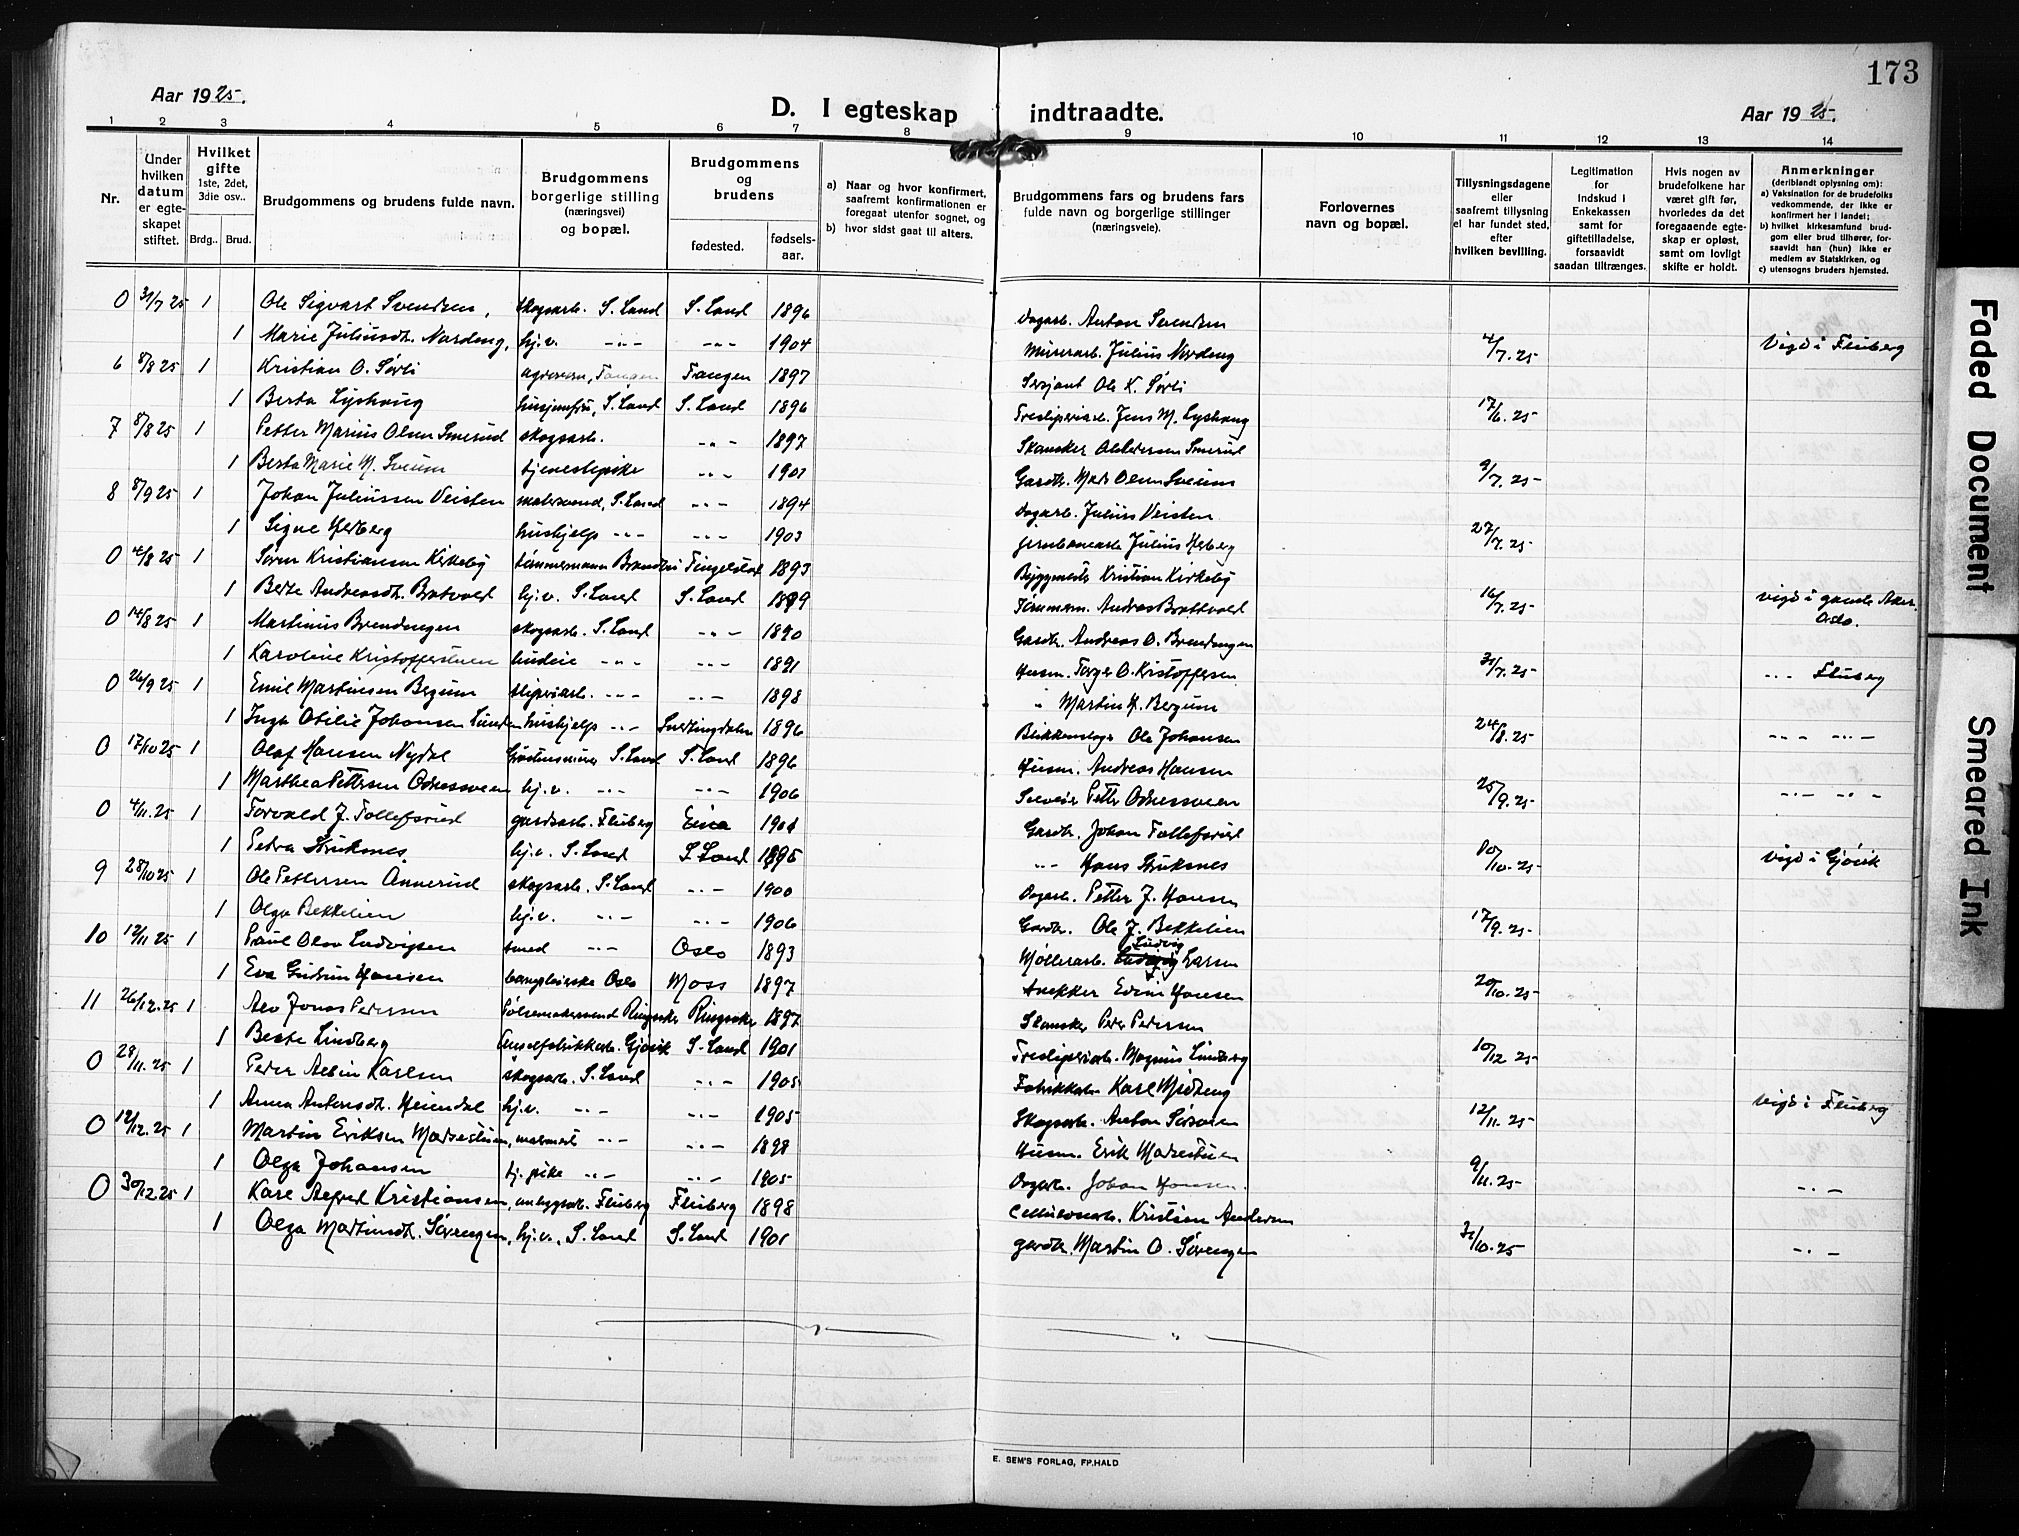 173
Aar 1925.
D. I egteskap indtraadte.
Aar 1925.
1 2 3 4 5 6 7 8 9 10 11 12 13 14
Nr.
Under hvilken datum er egteskapet stiftet.
Hvilket gifte 1ste, 2det, 3die osv..
Brdg.. Brud.
Brudgommens og brudens fulde navn.
Brudgommens borgerlige stilling (næringsvei) og bopæl.
Brudgommens og brudens
fødested. fødsels-aar.
a) Naar og hvor konfirmert, saafremt konfirmationen er foregaat utenfor sognet, og
b) hvor sidst gaat til alters.
Brudgommens fars og brudens fars fulde navn og borgerlige stillinger (næringsveie).
Forlovernes navn og bopæl.
Tillysningsdagene eller saafremt tillysning ei har fundet sted, efter hvilken bevilling.
Legitimation for indskud i Enkekassen samt for giftetilladelse, forsaavidt saadan tiltrænges.
Hvis nogen av brudefolkene har været gift før, hvorledes da det foregaaende egteskap er opløst, samt om lovligt skifte er holdt.
Anmerkninger (deriblandt oplysning om): a) Vaksination for de brudefolks vedkommende, der ikke er konfirmert her i landet; b) hvilket kirkesamfund brudgom eller brud tilhører, forsaavidt han (hun) ikke er medlem av Statskirken, og c) utensogns bruders hjemsted.
0 31/7 25 1 Ole Sigvart Svendsen, skogsarb. S. Land S. Land 1896 Dagarb. Anton Svendsen
1 Marie Juliusdt. Nordeng, hj.v. -"- -"- 1904 Murerarb. Julius Nordeng 4/7.25 Vigd i Fluberg
6 8/8 25 1 Kristian O. Sørli agronom, Tangen Tangen 1897 Sersjant Ole K. Sørli
1 Berta Lyshaug husjomfru, S. Land S. Land 1896 Tresliperiarb. Jens M. Lyshaug 17/6.25
7 8/8 25 1 Petter Marius Olsen Smerud skogsarb. -"- 1897 Skomaker Ole Smerud
1 Berta Marie M. Sveum tjenestepike -"- 1901 Gardbr. Mads Olsen Sveum 9/7.25
8 8/9 25 1 Johan Juliussen Veisten malersvend, S. Land -"- 1894 Dagarb. Julius Veisten
1 Signe Herberg hushjelp -"- -"- 1903 jernbanearb. Julius Herberg 27/7.25
0 14/8 25 1 Søren Kristiansen Kirkeby tømmermann Brandbu Tingelstad 1893 Byggmester Kristian Kirkeby
1 Berte Andreasdt. Bratvold hj.v. S. Land S. Land 1899 Tømmerm. Andreas Brattvold 16/7.25 vigd i gamle Aker Oslo.
0 14/8 25 1 Martinius Brendengen skogsarb. S. Land -"- 1890 Gardbr. Andreas O. Brendengen
1 Karoline Kristofferstuen budeie -"- -"- 1891 Husm. Torger O. Kristoffersen 31/7.25 -"- Fluberg
0 26/9 25 1 Emil Martinsen Bergum sliperiarb. -"- -"- 1898 " Martin H. Bergum
1 Inga Otilie Johansen hushjelp -"- Snertingdalen 1896 Blikkenslager Ole Johansen 24/8.25 -"- -"-
0 17/10 25 1 Olaf Hansen Nydal S. Land S. Land 1896 Husm. Andreas Hansen
1 Marthea Pettersen Odnessveen hj.v. -"- -"- 1906 Petter Odnessveen 25/9.25 -"- -"-
0 4/11.25 1 Torvald J. Tollefsrud gardsarb. Fluberg Eina 1901 Gardbr. Johan Tollefsrud
1 Petra Struksnes hj.v. S. Land S. Land 1895 -"- Hans Struksnes 10/10.25 vigd i Gjøvik
9 28/10 25 1 Ole Pettersen Annerud skogsarb. S. Land -"- 1900 Dagarb. Petter J. Hansen
1 Olga Bekkelien hj.v. -"- -"- 1906 Gardbr. Ole J. Bekkelien 17/9.25
10 12/11 25 1 Paul Olav Ludvigsen smed -"- Oslo 1893 Møllerarb. Ludvig Larsen
1 Eva Gudrun Hansen Oslo Moss 1897 Snekker Edvin Hansen 20/10.25
11 26/12.25 1 Alv Jonas Pedersen Pølsemakersvend Ringsaker Ringsaker 1897 Skomaker Peder Pedersen
1 Berte Lindberg Gjøvik S. Land 1901 Tresliperiarb. Magnus Lindberg 10/12 25
0 28/11.25 1 Peder Albin Karlsen skogsarb. S. Land -"- 1905 Fabrikkarb. Karl Midteng
1 Anna Antonsdt. Heiendal hj.v. -"- -"- 1905 Skogsarb. Anton 12/11.25 Vigd i Fluberg
0 12/12.25 1 Martin Eriksen Madsestuen, -"- -"- 1898 Husm. Erik Madsestuen
1 Olga Johansen tj. pike -"- -"- 1905 Dagarb. Johan Hansen. 9/11.25 -"-
0 30/12.25 1 Karl Alfred Kristiansen, anleggsarb. Fluberg Fluberg 1898 Cellulosearb. Kristian Andersen
1 Olga Martinsdt. Sørengen, hj.v., S. Land S. Land 1901 gardbr. Martin O. Sørengen 31/10.25 -"-
E. SEM'S FORLAG, FR.HALD
Faded Document
Smeared Ink